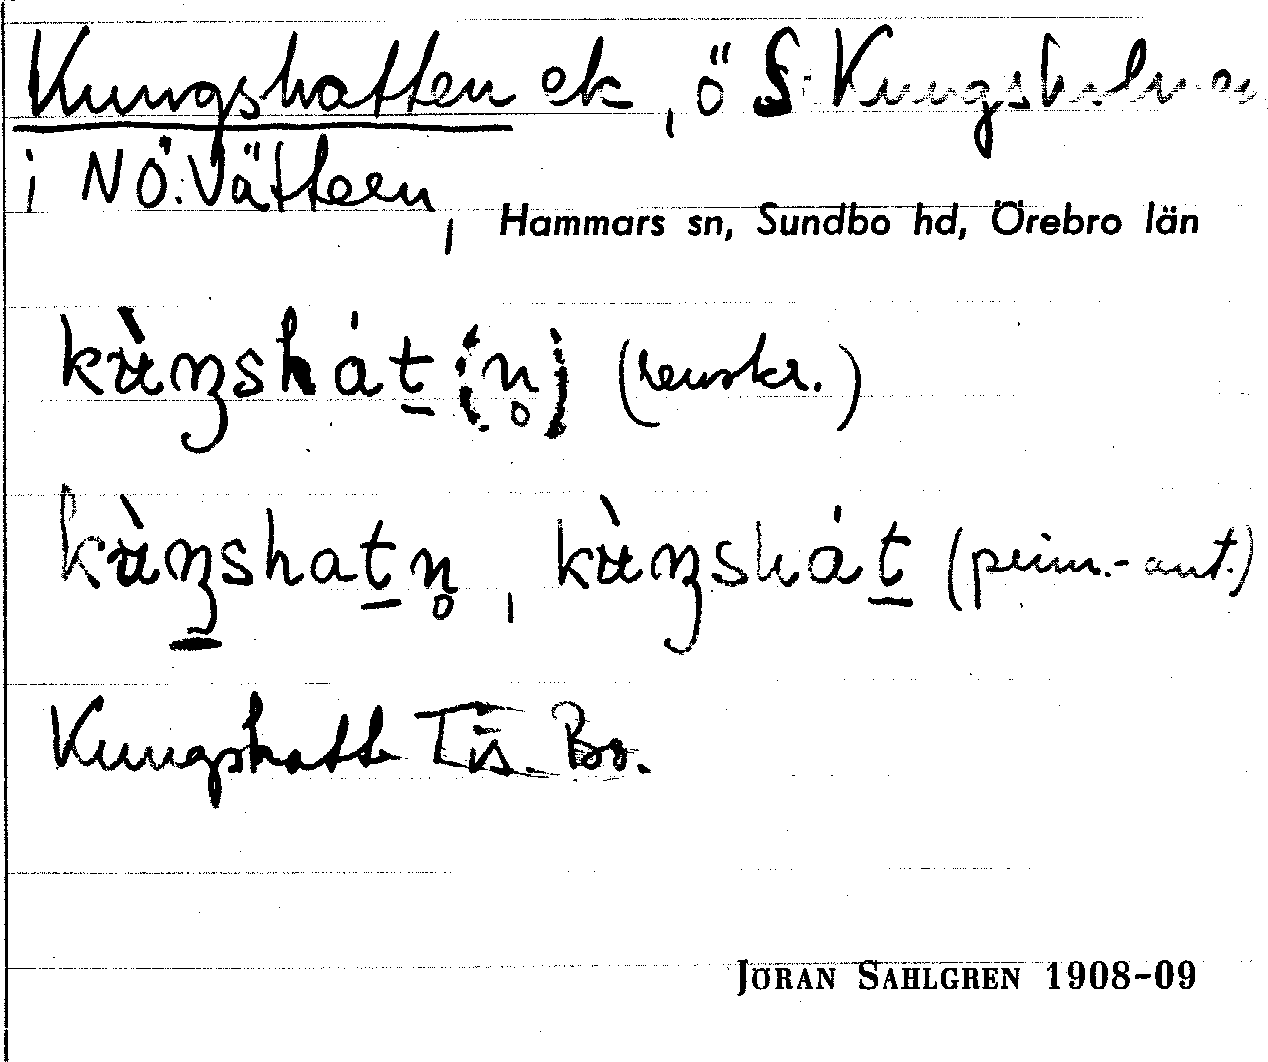 Kungshatten ek, ö S. Kungsholmen
i NÖ. Vättern,
Hammars sn, Sundbo hd, Örebro län
kʉ̀ŋshát̲(n̥) (renskr.)
kʉ̀ŋ̲shat̲n̥, kʉ̀ŋshát̲ (prim.-ant.)
Kungshatt
JÖRAN SAHLGREN 1908-09